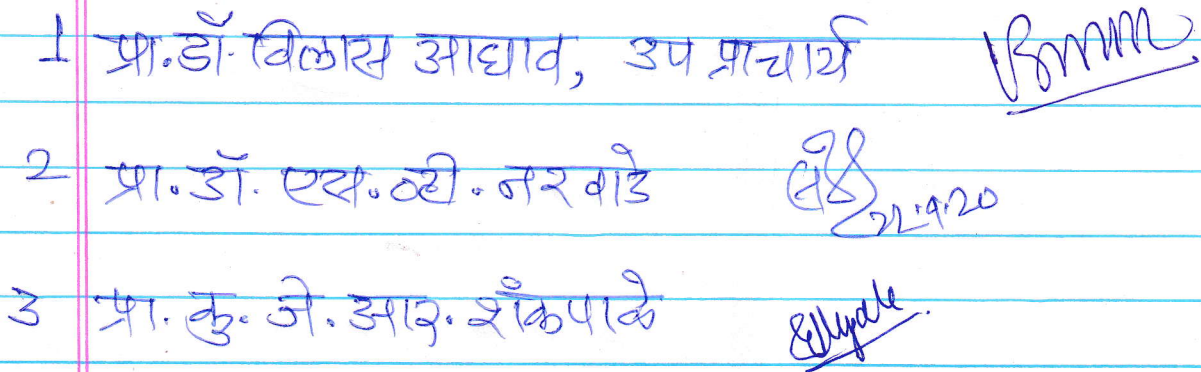 1 प्रा.डॉ. विलास आघाव, उप प्राचार्य
2 प्रा.डॉ. एस.व्ही.नरवाडे 22.9.20
3 प्रा.कु.जे.आर.शँकपाळे